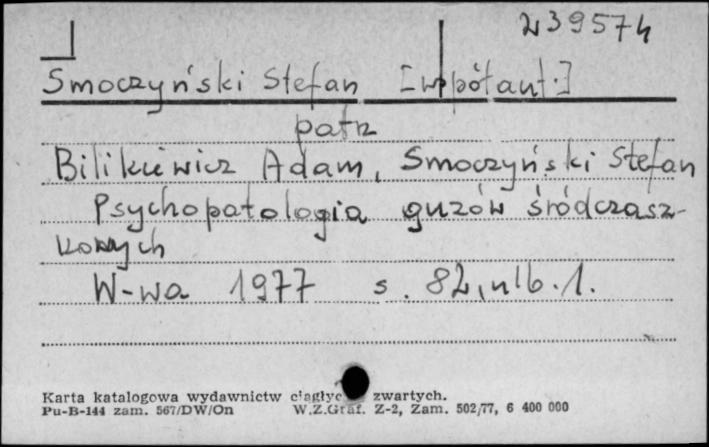 239574
Smoczyński Stefan [współaut.]
patrz
Bilikiewicz Adam, Smoczyński Stefan
Psychopatologia guzów śródczasz-
kowych
W-wa 1977 s. 82, nlb. 1.
Karta katalogowa wydawnictw zwartych.
Pu-B-144 zam. 567/DW/On W.Z.Graf. Z-2, Zam. 502/77, 6 400 000